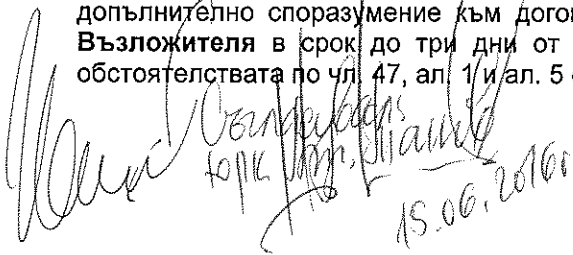 допълнително споразумение към догов
Възложителя в срок до три дни от
обстоятелствата по чл. 47, ал. 1 и ал. 5
Съгласувал:
юрк
15.06.2016г